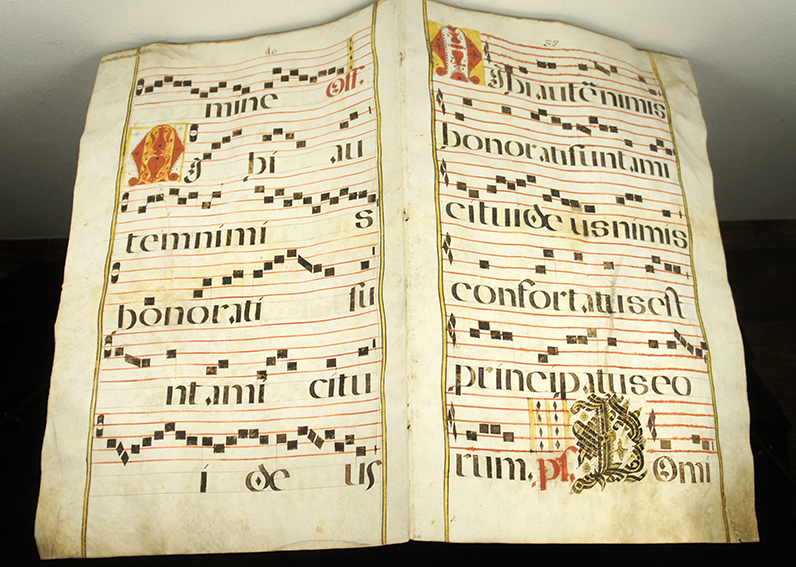 37
mine Off.
MIhi au
temnimi s
honorati su
ntami citu
i de us
MIhi autēnimis
honoratisuntami
cituideusnimis
confortatusest
principatuseo
rum. ps. Domi